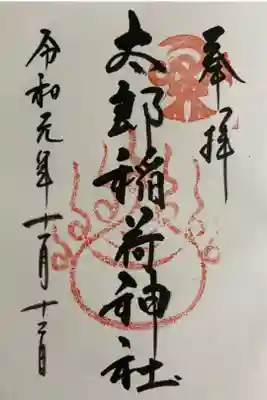 奉拝
太郎稲荷神社
令和元年十一月十二日